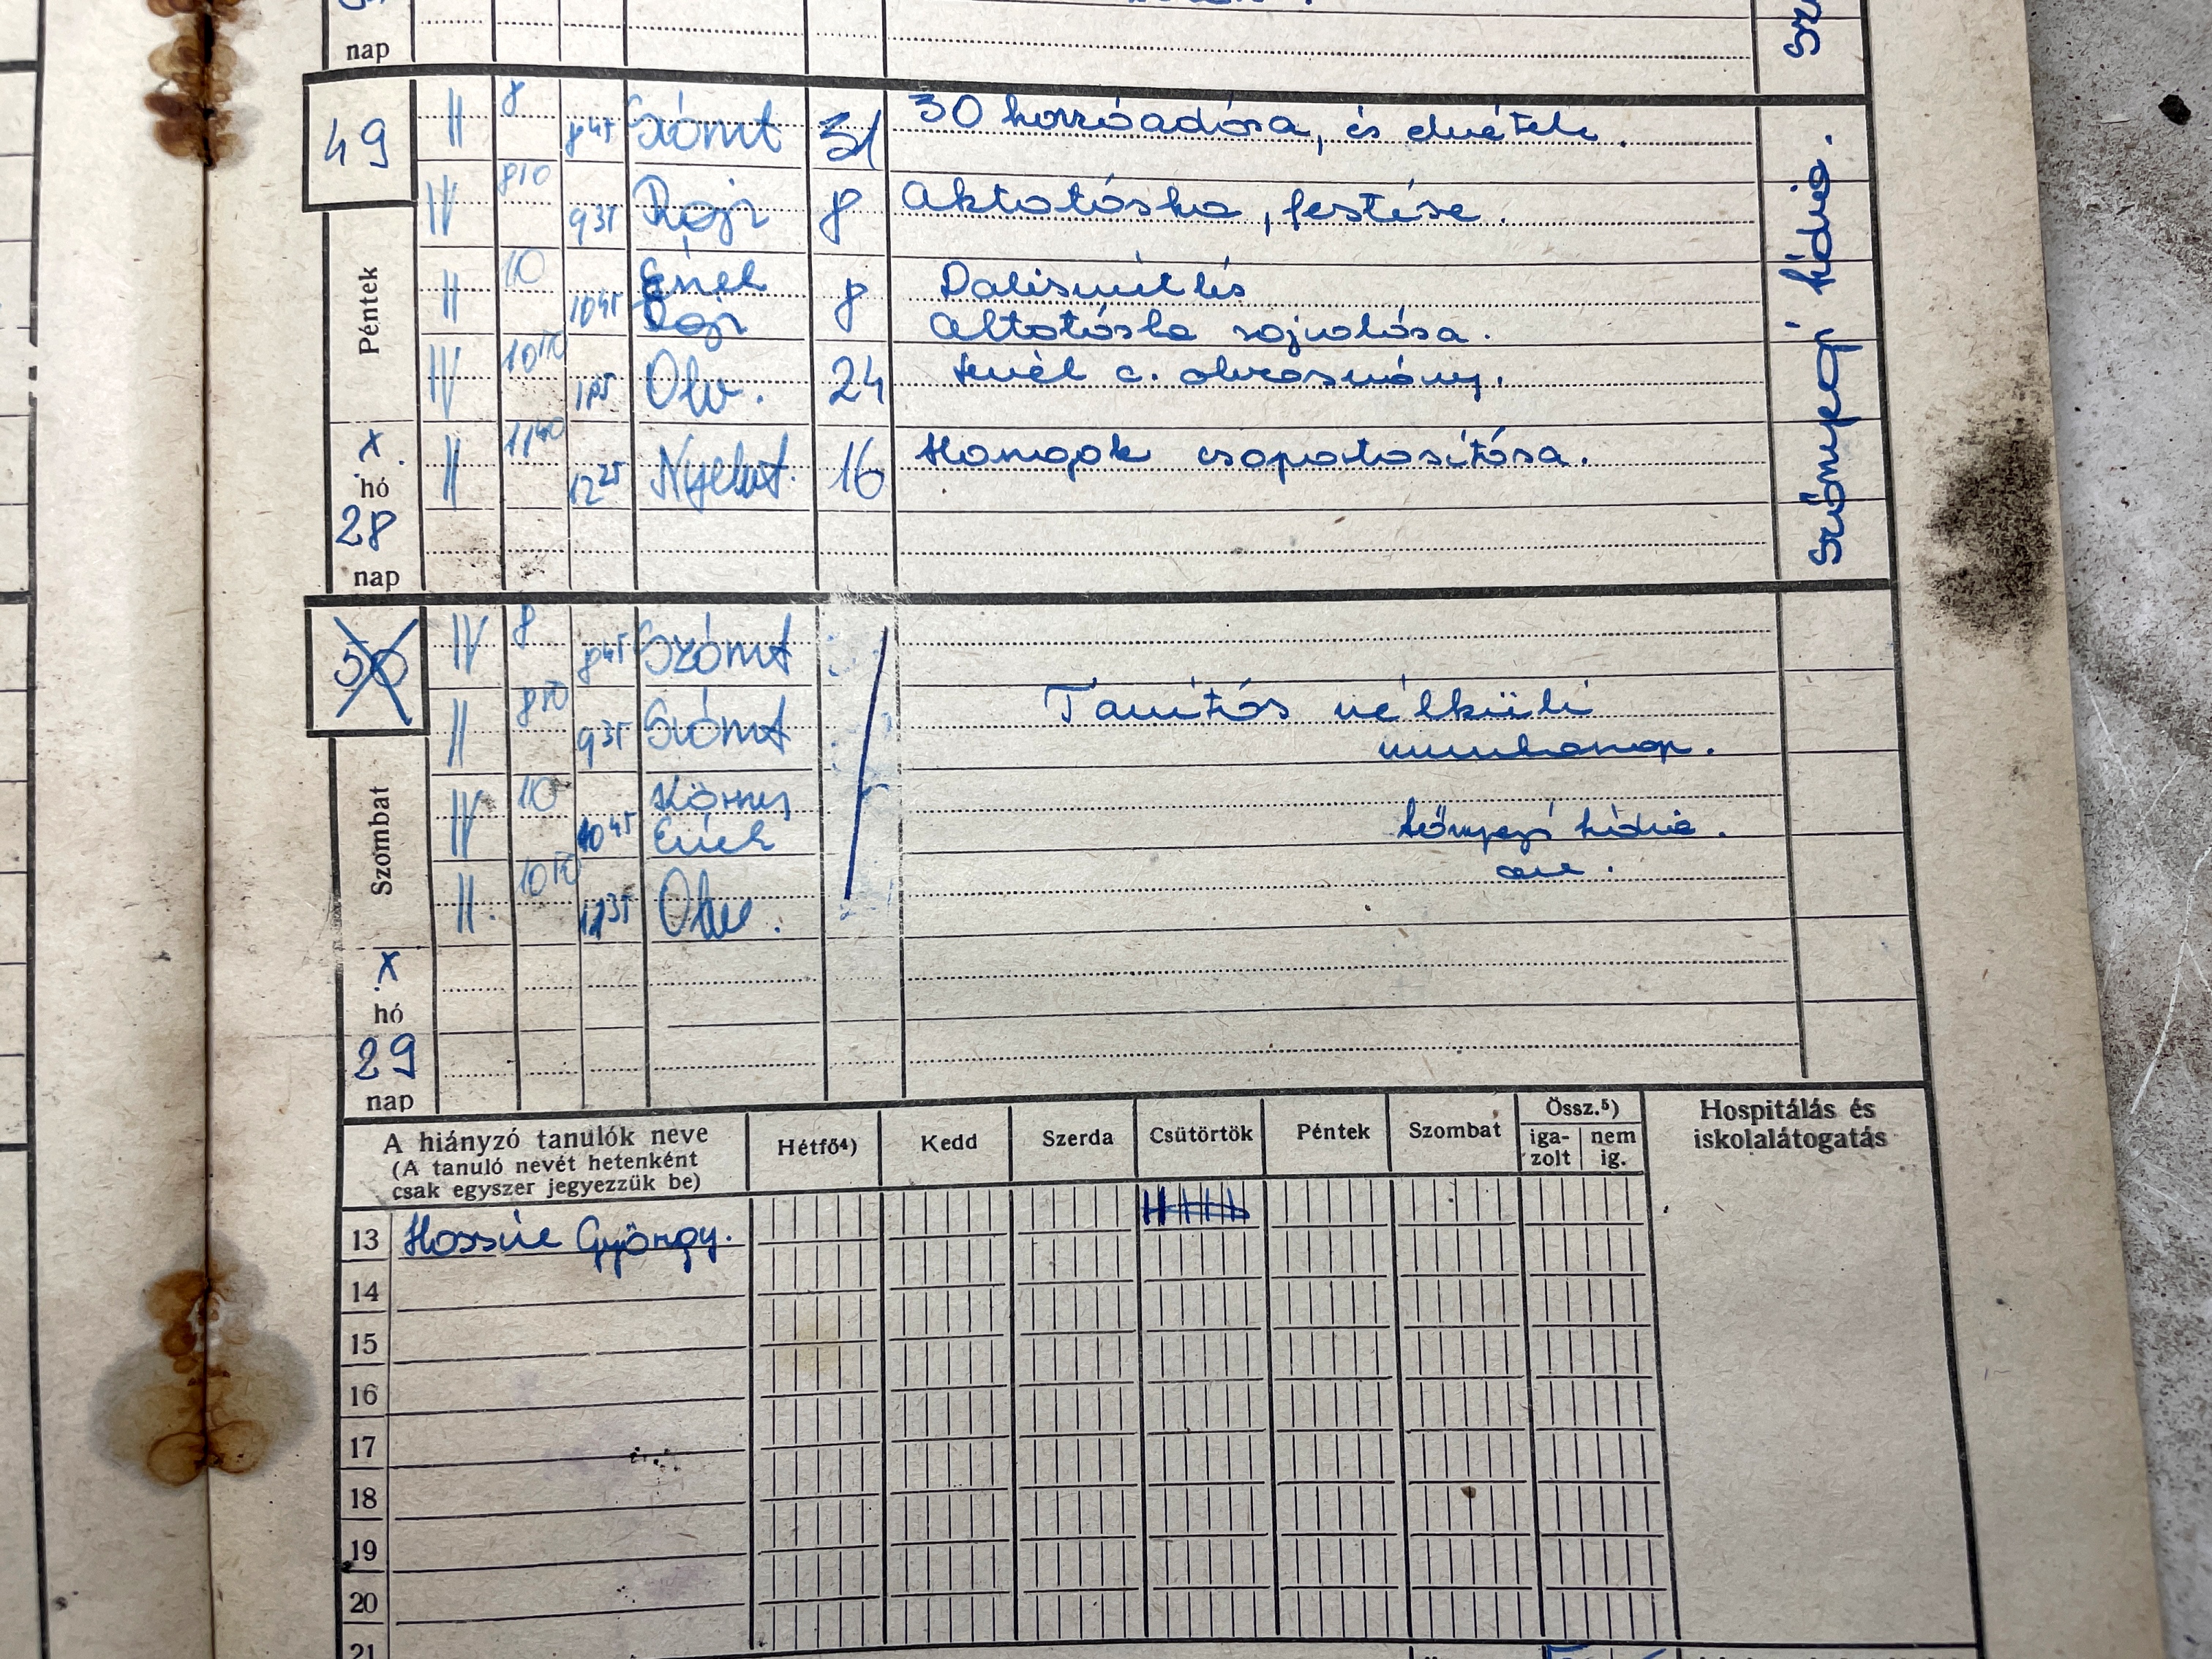 nap
49
Péntek
x.
hó
28
nap
II 8 8 45 Számt 31 30 hozzáadása, és elvétele.
IV 8 50 9 35 Rajz 8 Aktatáska, festése.
II 10 10 45 Ének 8 Dalismétlés
Rajz Aktatáska rajzolása.
IV 10 50 Olv. 24 levél c. olvasmány.
II 11 40 12 25 Nyelvt. 16 Hangok csoportosítása.
50
Szombat
x
hó
29
nap
IV 8 8 45 Számt
II 8 50 9 35 Számt
Tanítás nélküli
munkanap.
IV 10 10 45 Körny
Ének
II. 10 50 11 35 Olv.
A hiányzó tanulók neve
(A tanuló nevét hetenként
csak egyszer jegyezzük be)
Hétfő⁴) Kedd Szerda Csütörtök Péntek Szombat
Össz.⁵)
iga-
zolt
nem
ig.
Hospitálás és
iskolalátogatás
13 György.
14
15
16
17
18
19
20
21